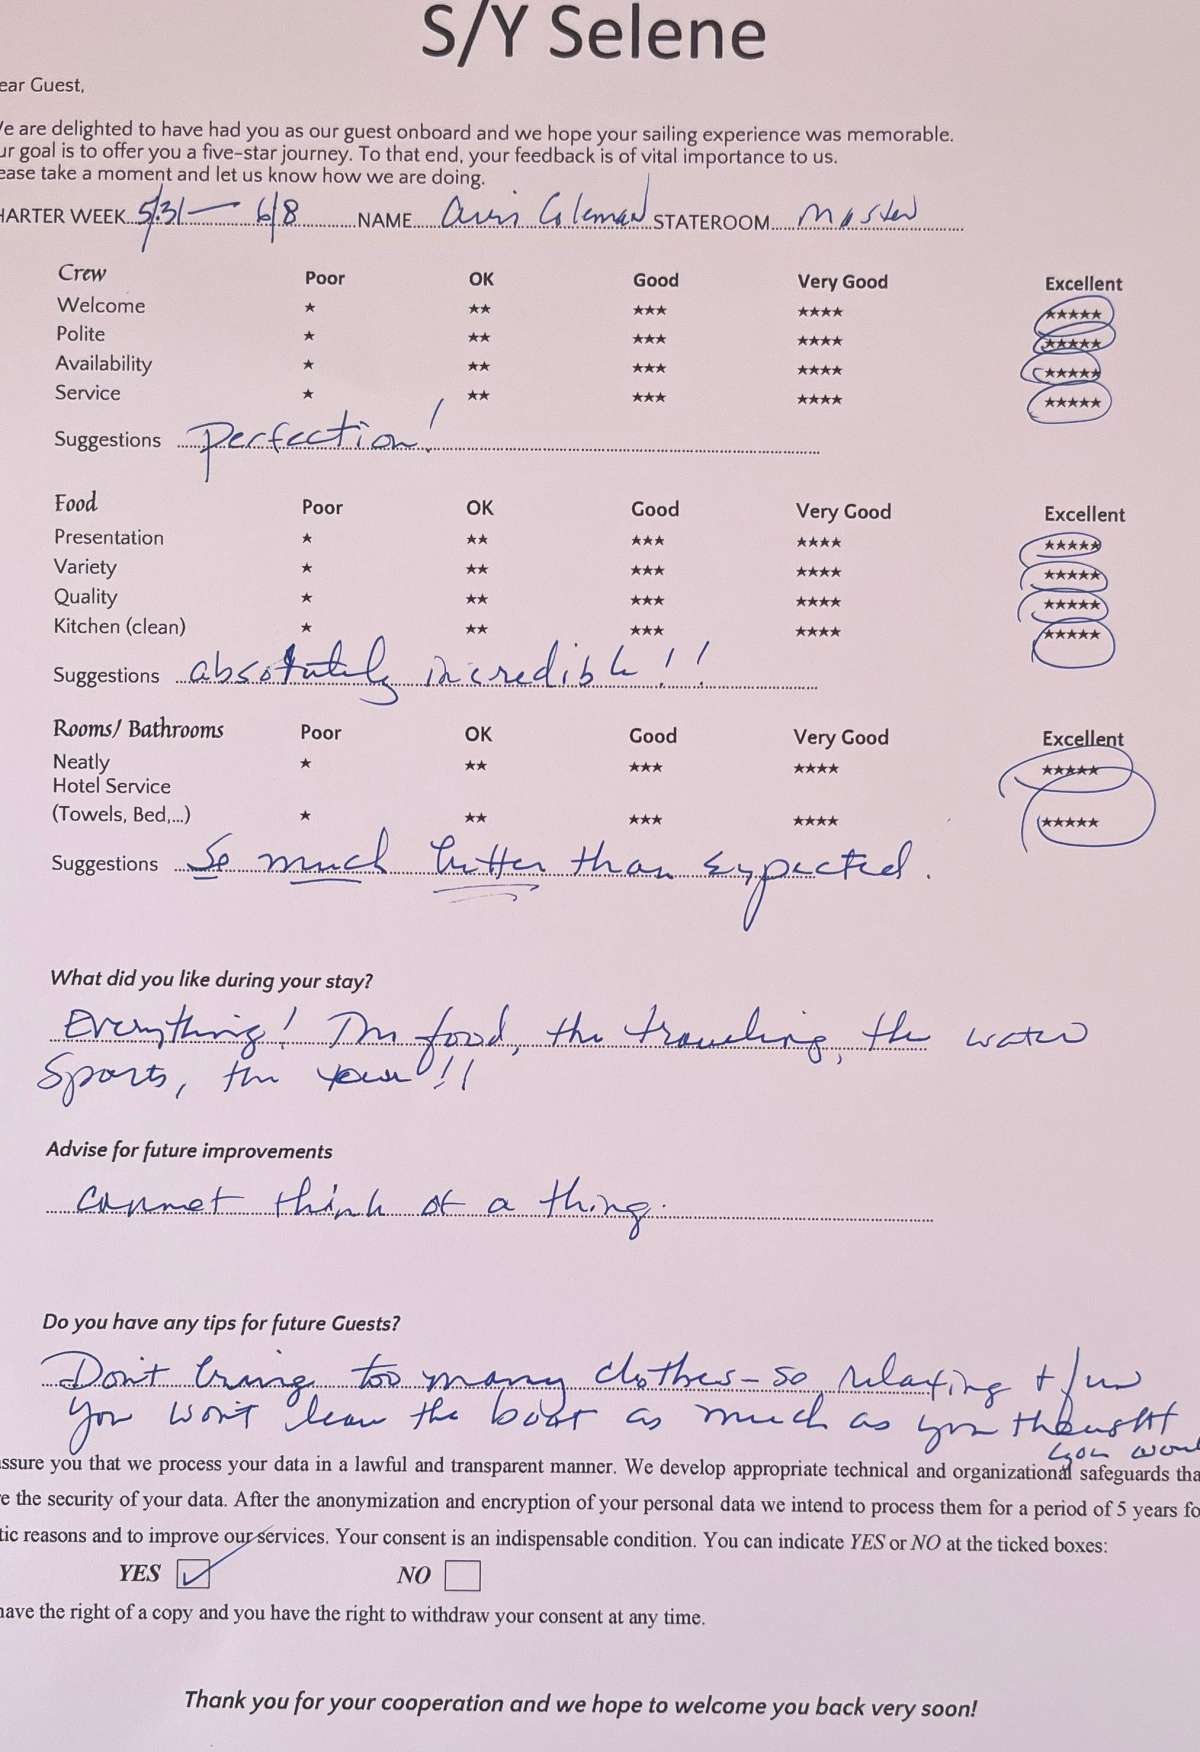 S/Y Selene
ear Guest,
e are delighted to have had you as our guest onboard and we hope your sailing experience was memorable.
ur goal is to offer you a five-star journey. To that end, your feedback is of vital importance to us.
ease take a moment and let us know how we are doing.
HARTER WEEK 5/31 — 6/8 NAME Coleman STATEROOM Master
Crew Poor OK Good Very Good Excellent
Welcome ★ ★★ ★★★ ★★★★ ★★★★★
Polite ★ ★★ ★★★ ★★★★ ★★★★★
Availability ★ ★★ ★★★ ★★★★ ★★★★★
Service ★ ★★ ★★★ ★★★★ ★★★★★
Suggestions Perfection!
Food Poor OK Good Very Good Excellent
Presentation ★ ★★ ★★★ ★★★★ ★★★★★
Variety ★ ★★ ★★★ ★★★★ ★★★★★
Quality ★ ★★ ★★★ ★★★★ ★★★★★
Kitchen (clean) ★ ★★ ★★★ ★★★★ ★★★★★
Suggestions absolutely incredible!!
Rooms/ Bathrooms Poor OK Good Very Good Excellent
Neatly ★ ★★ ★★★ ★★★★ ★★★★★
Hotel Service
(Towels, Bed,...) ★ ★★ ★★★ ★★★★ ★★★★★
Suggestions So much better than expected.
What did you like during your stay?
Everything! The food, the traveling, the water
Sports, the !!
Advise for future improvements
Cannot think of a thing.
Do you have any tips for future Guests?
Don't bring too many clothes - so relaxing + fun
You won't leave the boat as much as you thought
you
ssure you that we process your data in a lawful and transparent manner. We develop appropriate technical and organizational safeguards tha
e the security of your data. After the anonymization and encryption of your personal data we intend to process them for a period of 5 years fo
tic reasons and to improve our services. Your consent is an indispensable condition. You can indicate YES or NO at the ticked boxes:
YES NO
have the right of a copy and you have the right to withdraw your consent at any time.
Thank you for your cooperation and we hope to welcome you back very soon!